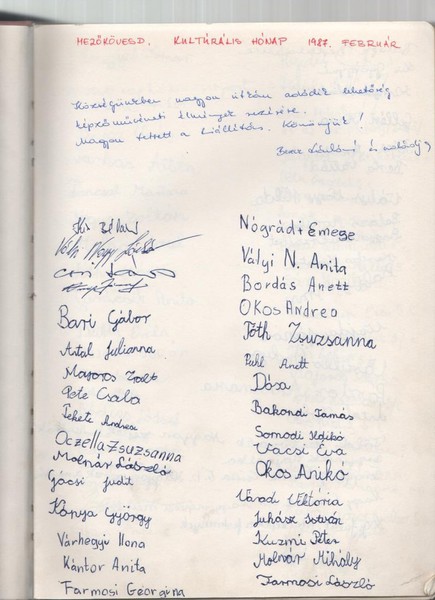 MEZŐKÖVESD. KULTÚRÁLIS HÓNAP 1987. FEBRUÁR
Községünkben nagyon ritkán adódik lehetőség
képzőművészeti élmények szerzésére.
Nagyon tetszett a kiállítás. Köszönjük!
és családja
Kis Béláné
Nagy
Bari Gábor
Antal Julianna
Majoros Zsolt
Pete Csaba
Fekete Andrea
Oczella Zsuzsanna
Molnár László
Gácsi Judit
Kánya György
Várhegyi Ilona
Kántor Anita
Farmosi Georgina
Nógrádi Emege
Vályi N. Anita
Bordás Anett
Okos Andrea
Tóth Zsuzsanna
Puhl Anett
Dósa
Bakondi Tamás
Somodi Ildikó
Vácsi Éva
Okos Anikó
Váradi Viktória
Juhász István
Kuzmi Péter
Molnár Mihály
Farmosi László